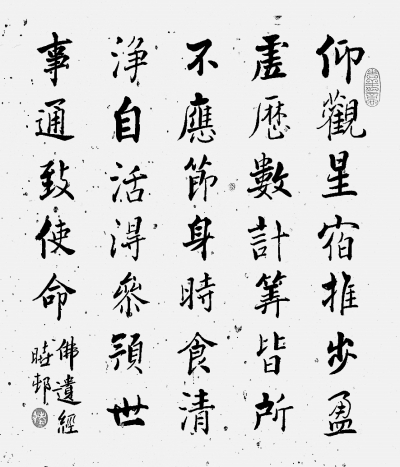 仰觀星宿推步盈
虛歷數計筭皆所
不應節身時食清
淨自活得參預世
事通致使命
佛遺經
曉邨